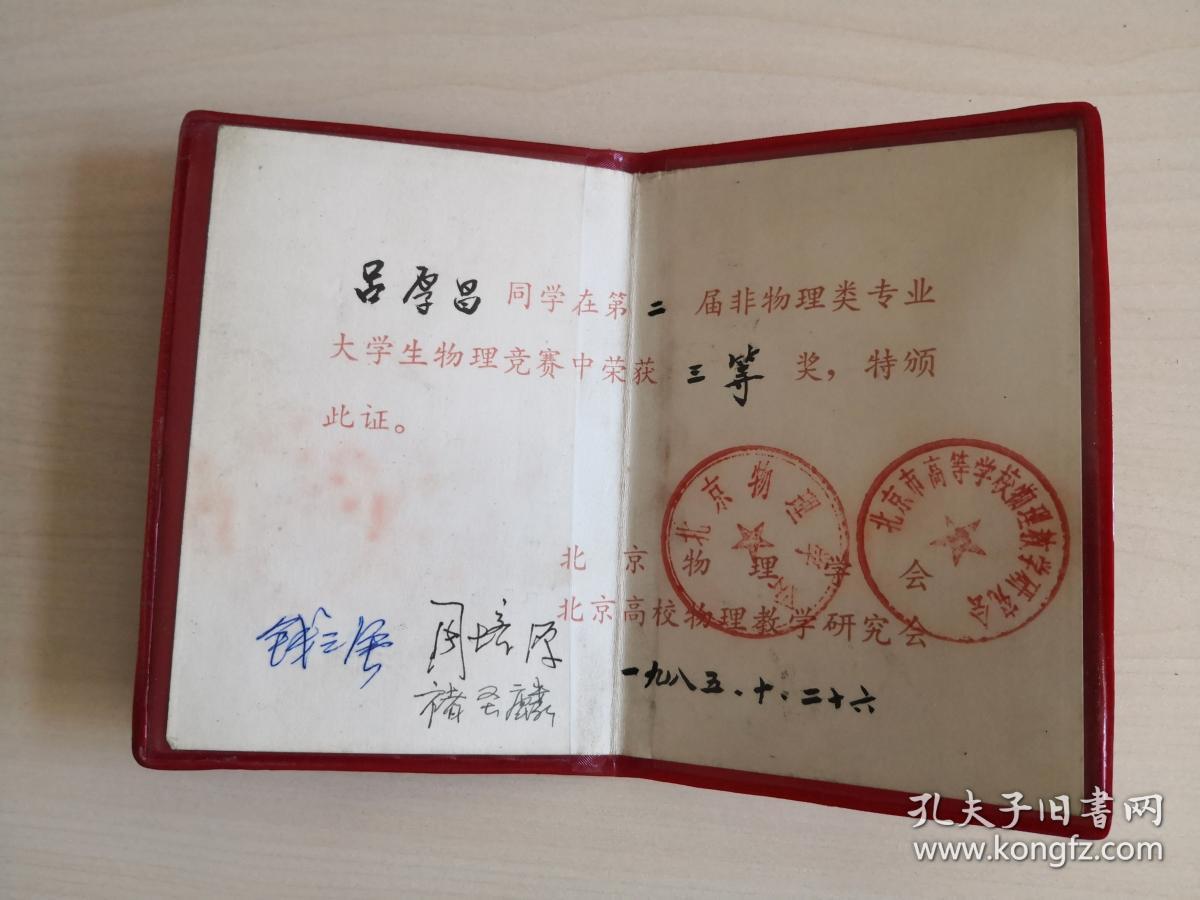 吕厚昌同学在第二届非物理类专业
大学生物理竞赛中荣获三等奖，特颁
此证。
北京物理学会
北京高校物理教学研究会
一九八五.十.二十六
钱三强
周培源
褚圣麟
北京物理学会
北京市高等学校物理教学研究会
孔夫子旧书网
www.kongfz.com